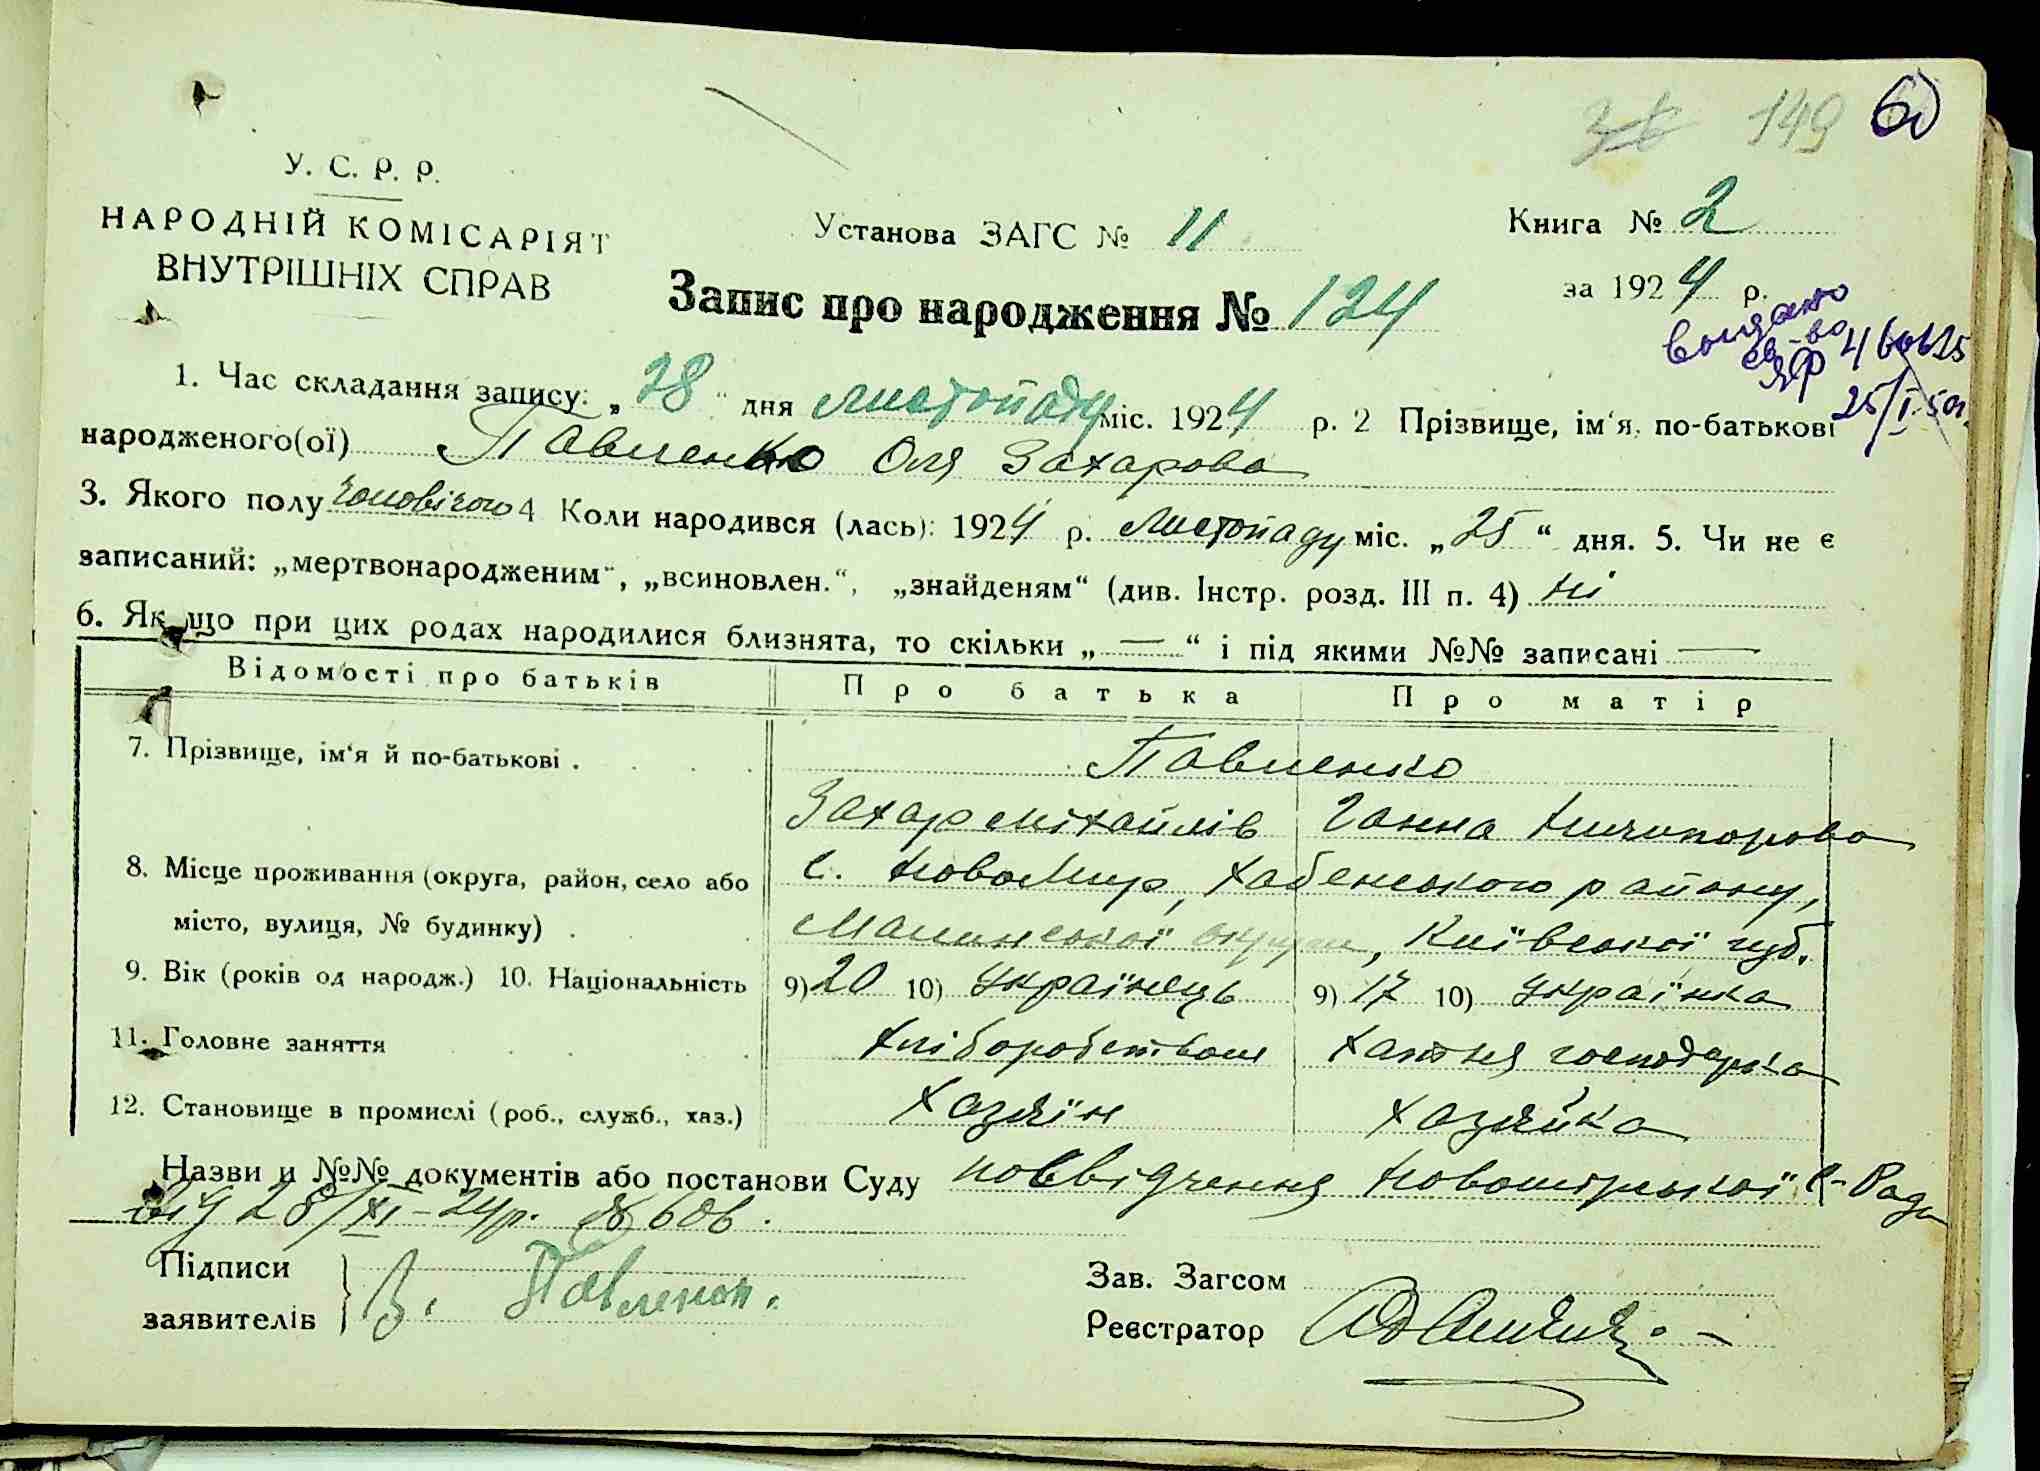 149
У. С. Р. Р.
НАРОДНІЙ КОМІСАРІЯТ
ВНУТРІШНІХ СПРАВ
Установа ЗАГС № 11
Книга № 2
за 1924 р.
Запис про народження № 124
видано
св-во
ЯФ
25/I-50
1. Час складання запису: „28“ дня листопаду міс. 1924 р. 2 Прізвище, ім‘я, по-батькові
народженого(ої) Павленко Оля Захарова
3. Якого полу чоловічого 4 Коли народився (лась): 1924 р. Листопаду міс. „25“ дня. 5. Чи не є
записаний: „мертвонародженим“, „всиновлен.“, „знайденям“ (див. Інстр. розд. III п. 4) ні
6. Як що при цих родах народилися близнята, то скільки „—“ і під якими №№ записані —
Відомості про батьків Про батька Про матір
7. Прізвище, ім‘я й по-батькові . Павленко
Захар Міхайлів Ганна Ничипорова
8. Місце проживання (округа, район, село або с. Новомир, Хабенського району,
місто, вулиця, № будинку) . Малинської округи, Київської губ.
9. Вік (років од народж.) 10. Національність 9) 20 10) Українець 9) 17 10) Українка
11. Головне заняття Хліборобством Хатня господарка
12. Становище в промислі (роб., служб., хаз.) Хазяїн Хазяйка
Назви и №№ документів або постанови Суду посвідчення Новомірської С-Ради
від 28/XI-24р. № 606.
Підписи
заявителів З. Павленко.
Зав. Загсом
Реєстратор